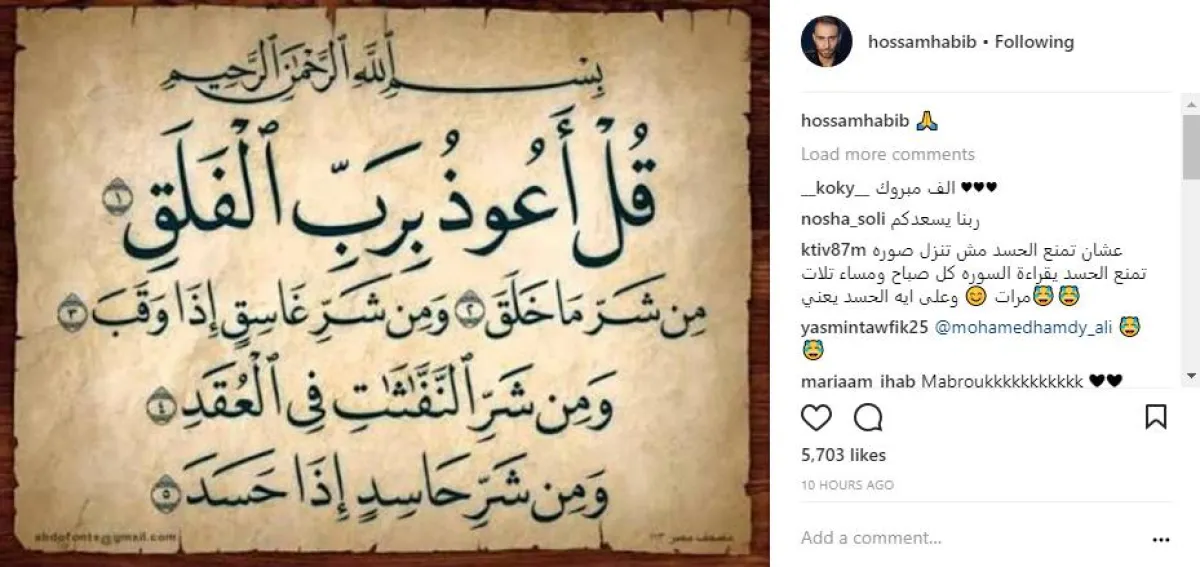 بِسْمِ ٱللَّهِ ٱلرَّحْمَٰنِ ٱلرَّحِيمِ
قُلْ أَعُوذُ بِرَبِّ ٱلْفَلَقِ ١
مِن شَرِّ مَا خَلَقَ ٢ وَمِن شَرِّ غَاسِقٍ إِذَا وَقَبَ ٣
وَمِن شَرِّ ٱلنَّفَّٰثَٰتِ فِى ٱلْعُقَدِ ٤
وَمِن شَرِّ حَاسِدٍ إِذَا حَسَدَ ٥
abdofonts@gmail.com
مصحف مصر ١١٣
hossamhabib • Following
hossamhabib 🙏
Load more comments
__koky__ الف مبروك ♥♥♥
nosha_soli ربنا يسعدكم
ktiv87m عشان تمنع الحسد مش تنزل صوره
تمنع الحسد يقراءة السوره كل صباح ومساء تلات
مرات 😊 وعلى ايه الحسد يعني😹😹
yasmintawfik25 @mohamedhamdy_ali 😹
😹
mariaam_ihab Mabroukkkkkkkkkkk ♥♥
5,703 likes
10 HOURS AGO
Add a comment...